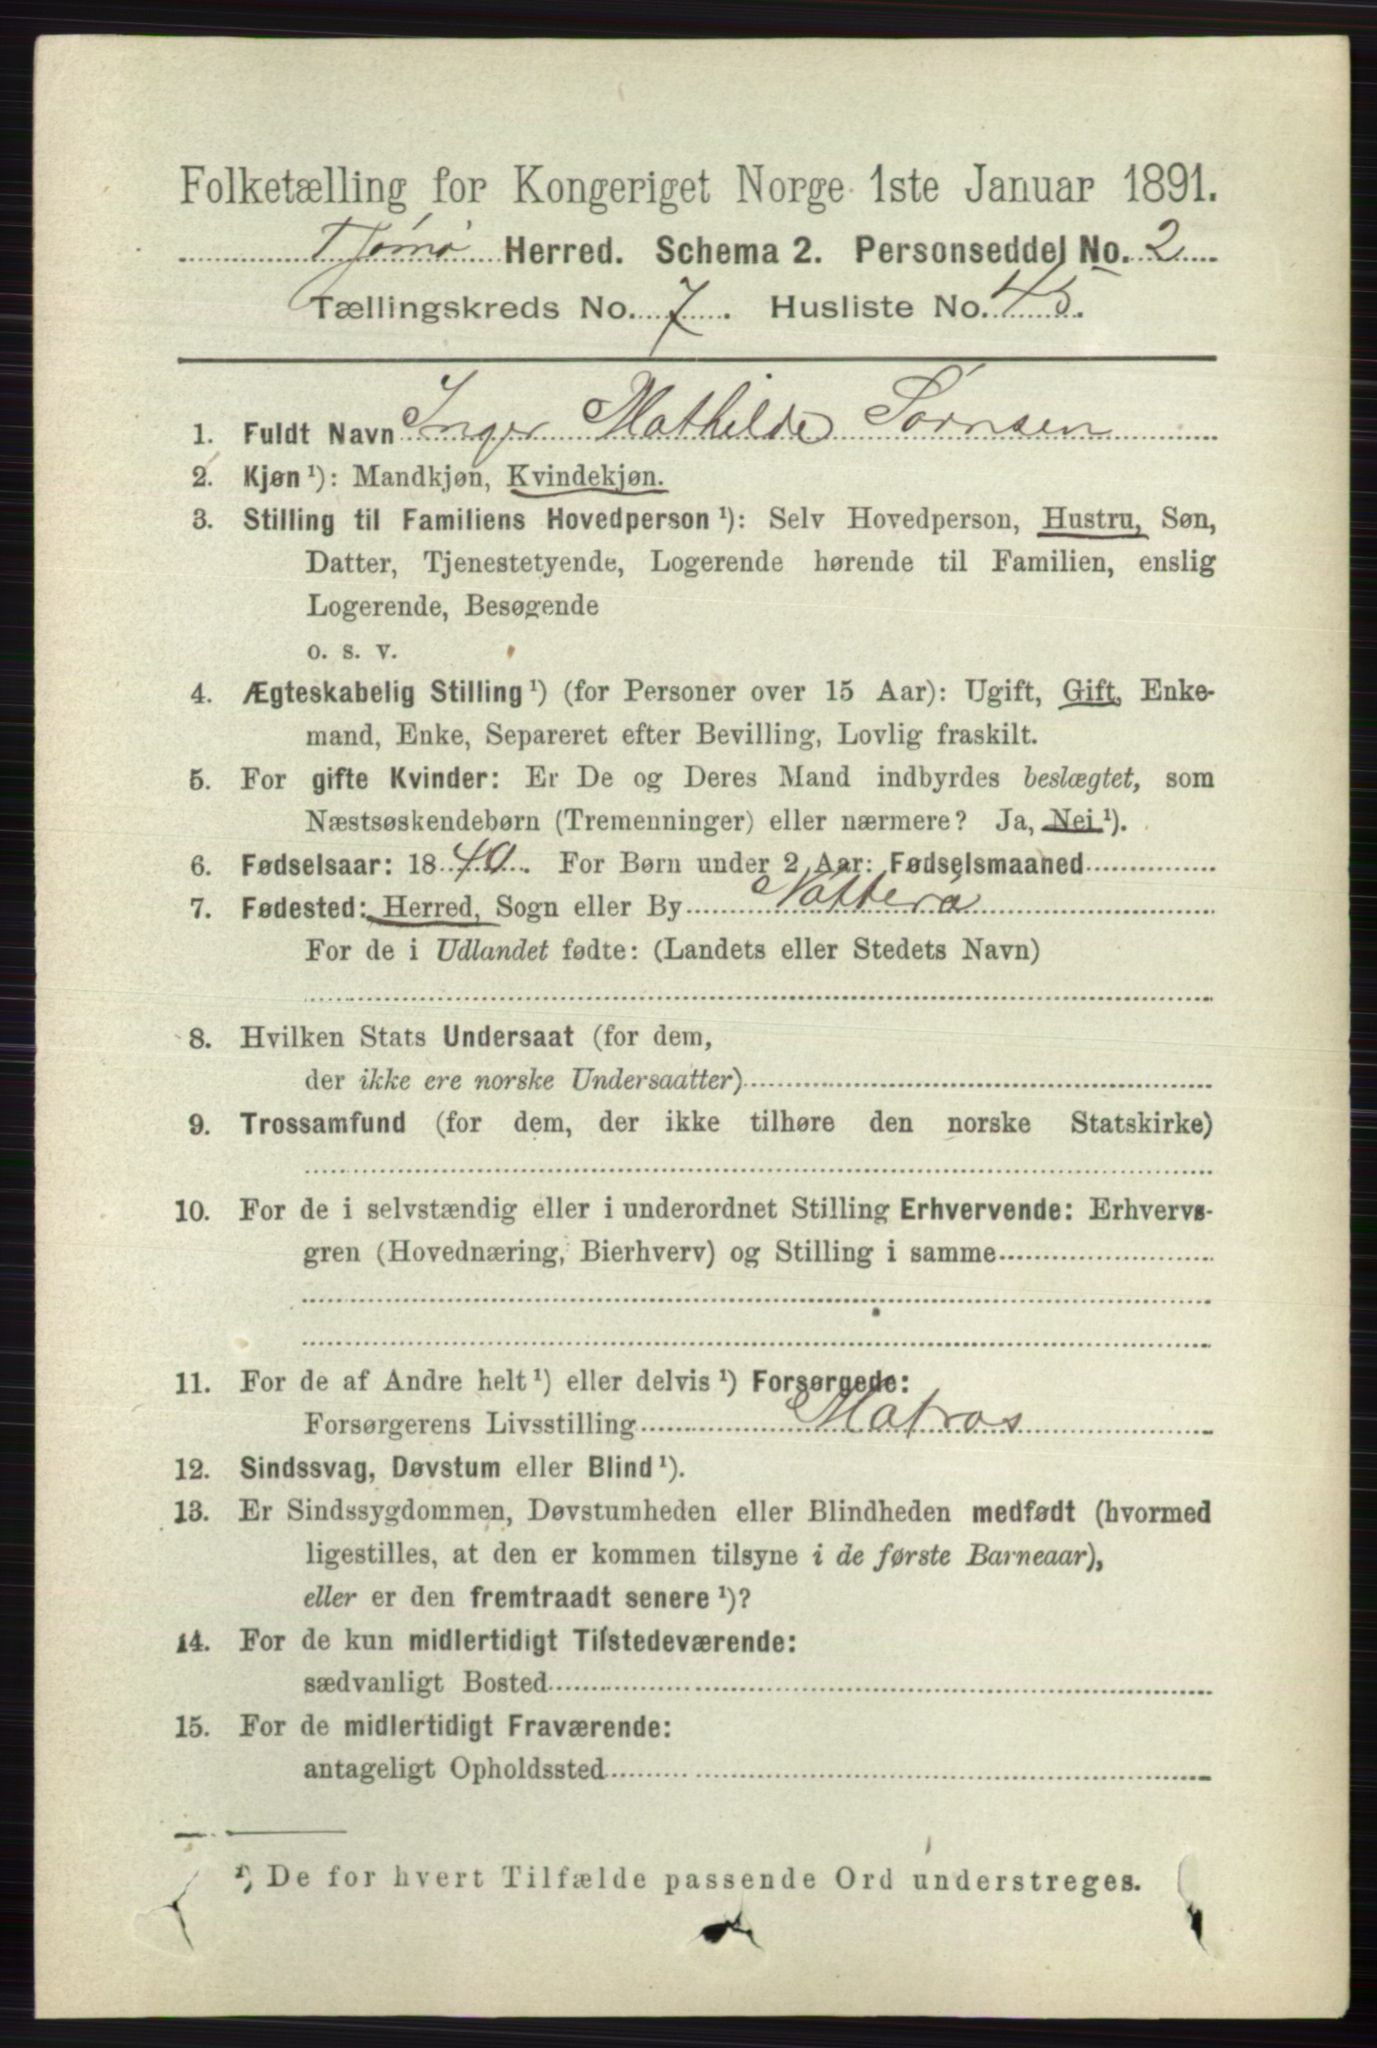 Folketælling for Kongeriget Norge 1ste Januar 1891.
Tjømø Herred. Schema 2. Personseddel No. 2
Tællingskreds No. 7. Husliste No. 45.
1. Fuldt Navn Inger Mathilde Sørnsen
2. Kjøn ¹): Mandkjøn, Kvindekjøn.
3. Stilling til Familiens Hovedperson ¹): Selv Hovedperson, Hustru, Søn,
Datter, Tjenestetyende, Logerende hørende til Familien, enslig
Logerende, Besøgende
o. s. v.
4. Ægteskabelig Stilling ¹) (for Personer over 15 Aar): Ugift, Gift, Enke-
mand, Enke, Separeret efter Bevilling, Lovlig fraskilt.
5. For gifte Kvinder: Er De og Deres Mand indbyrdes beslægtet, som
Næstsøskendebørn (Tremenninger) eller nærmere? Ja, Nei ¹).
6. Fødselsaar: 1840. For Børn under 2 Aar: Fødselsmaaned
7. Fødested: Herred, Sogn eller By Nøtterø
For de i Udlandet fødte: (Landets eller Stedets Navn)
8. Hvilken Stats Undersaat (for dem,
der ikke ere norske Undersaatter)
9. Trossamfund (for dem, der ikke tilhøre den norske Statskirke)
10. For de i selvstændig eller i underordnet Stilling Erhvervende: Erhvervs-
gren (Hovednæring, Bierhverv) og Stilling i samme
11. For de af Andre helt ¹) eller delvis ¹) Forsørgede:
Forsørgerens Livsstilling Matros
12. Sindssvag, Døvstum eller Blind ¹).
13. Er Sindssygdommen, Døvstumheden eller Blindheden medfødt (hvormed
ligestilles, at den er kommen tilsyne i de første Barneaar),
eller er den fremtraadt senere ¹)?
14. For de kun midlertidigt Tilstedeværende:
sædvanligt Bosted
15. For de midlertidigt Fraværende:
antageligt Opholdssted
¹) De for hvert Tilfælde passende Ord understreges.